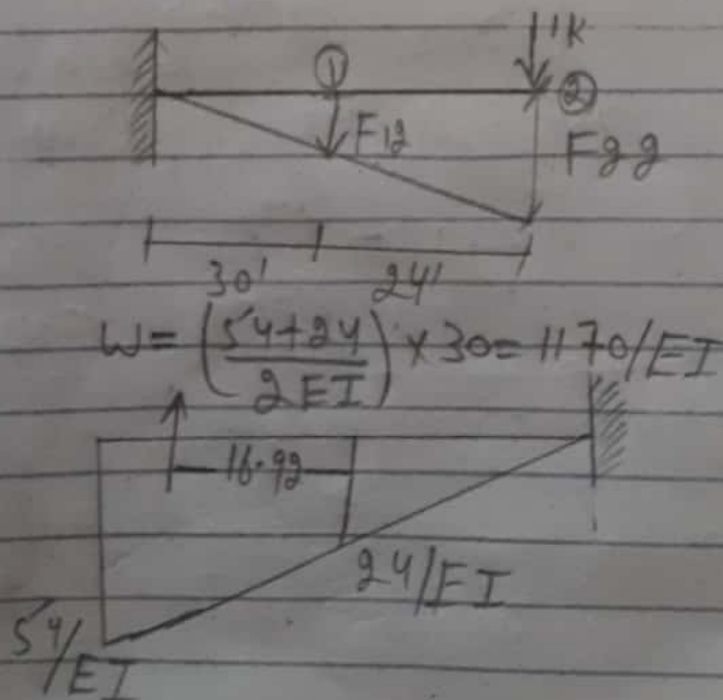 1K
①
②
F12
F22
30' 24'
W = (54+24 / 2EI) × 30 = 1170/EI
16.92
24/EI
54/EI